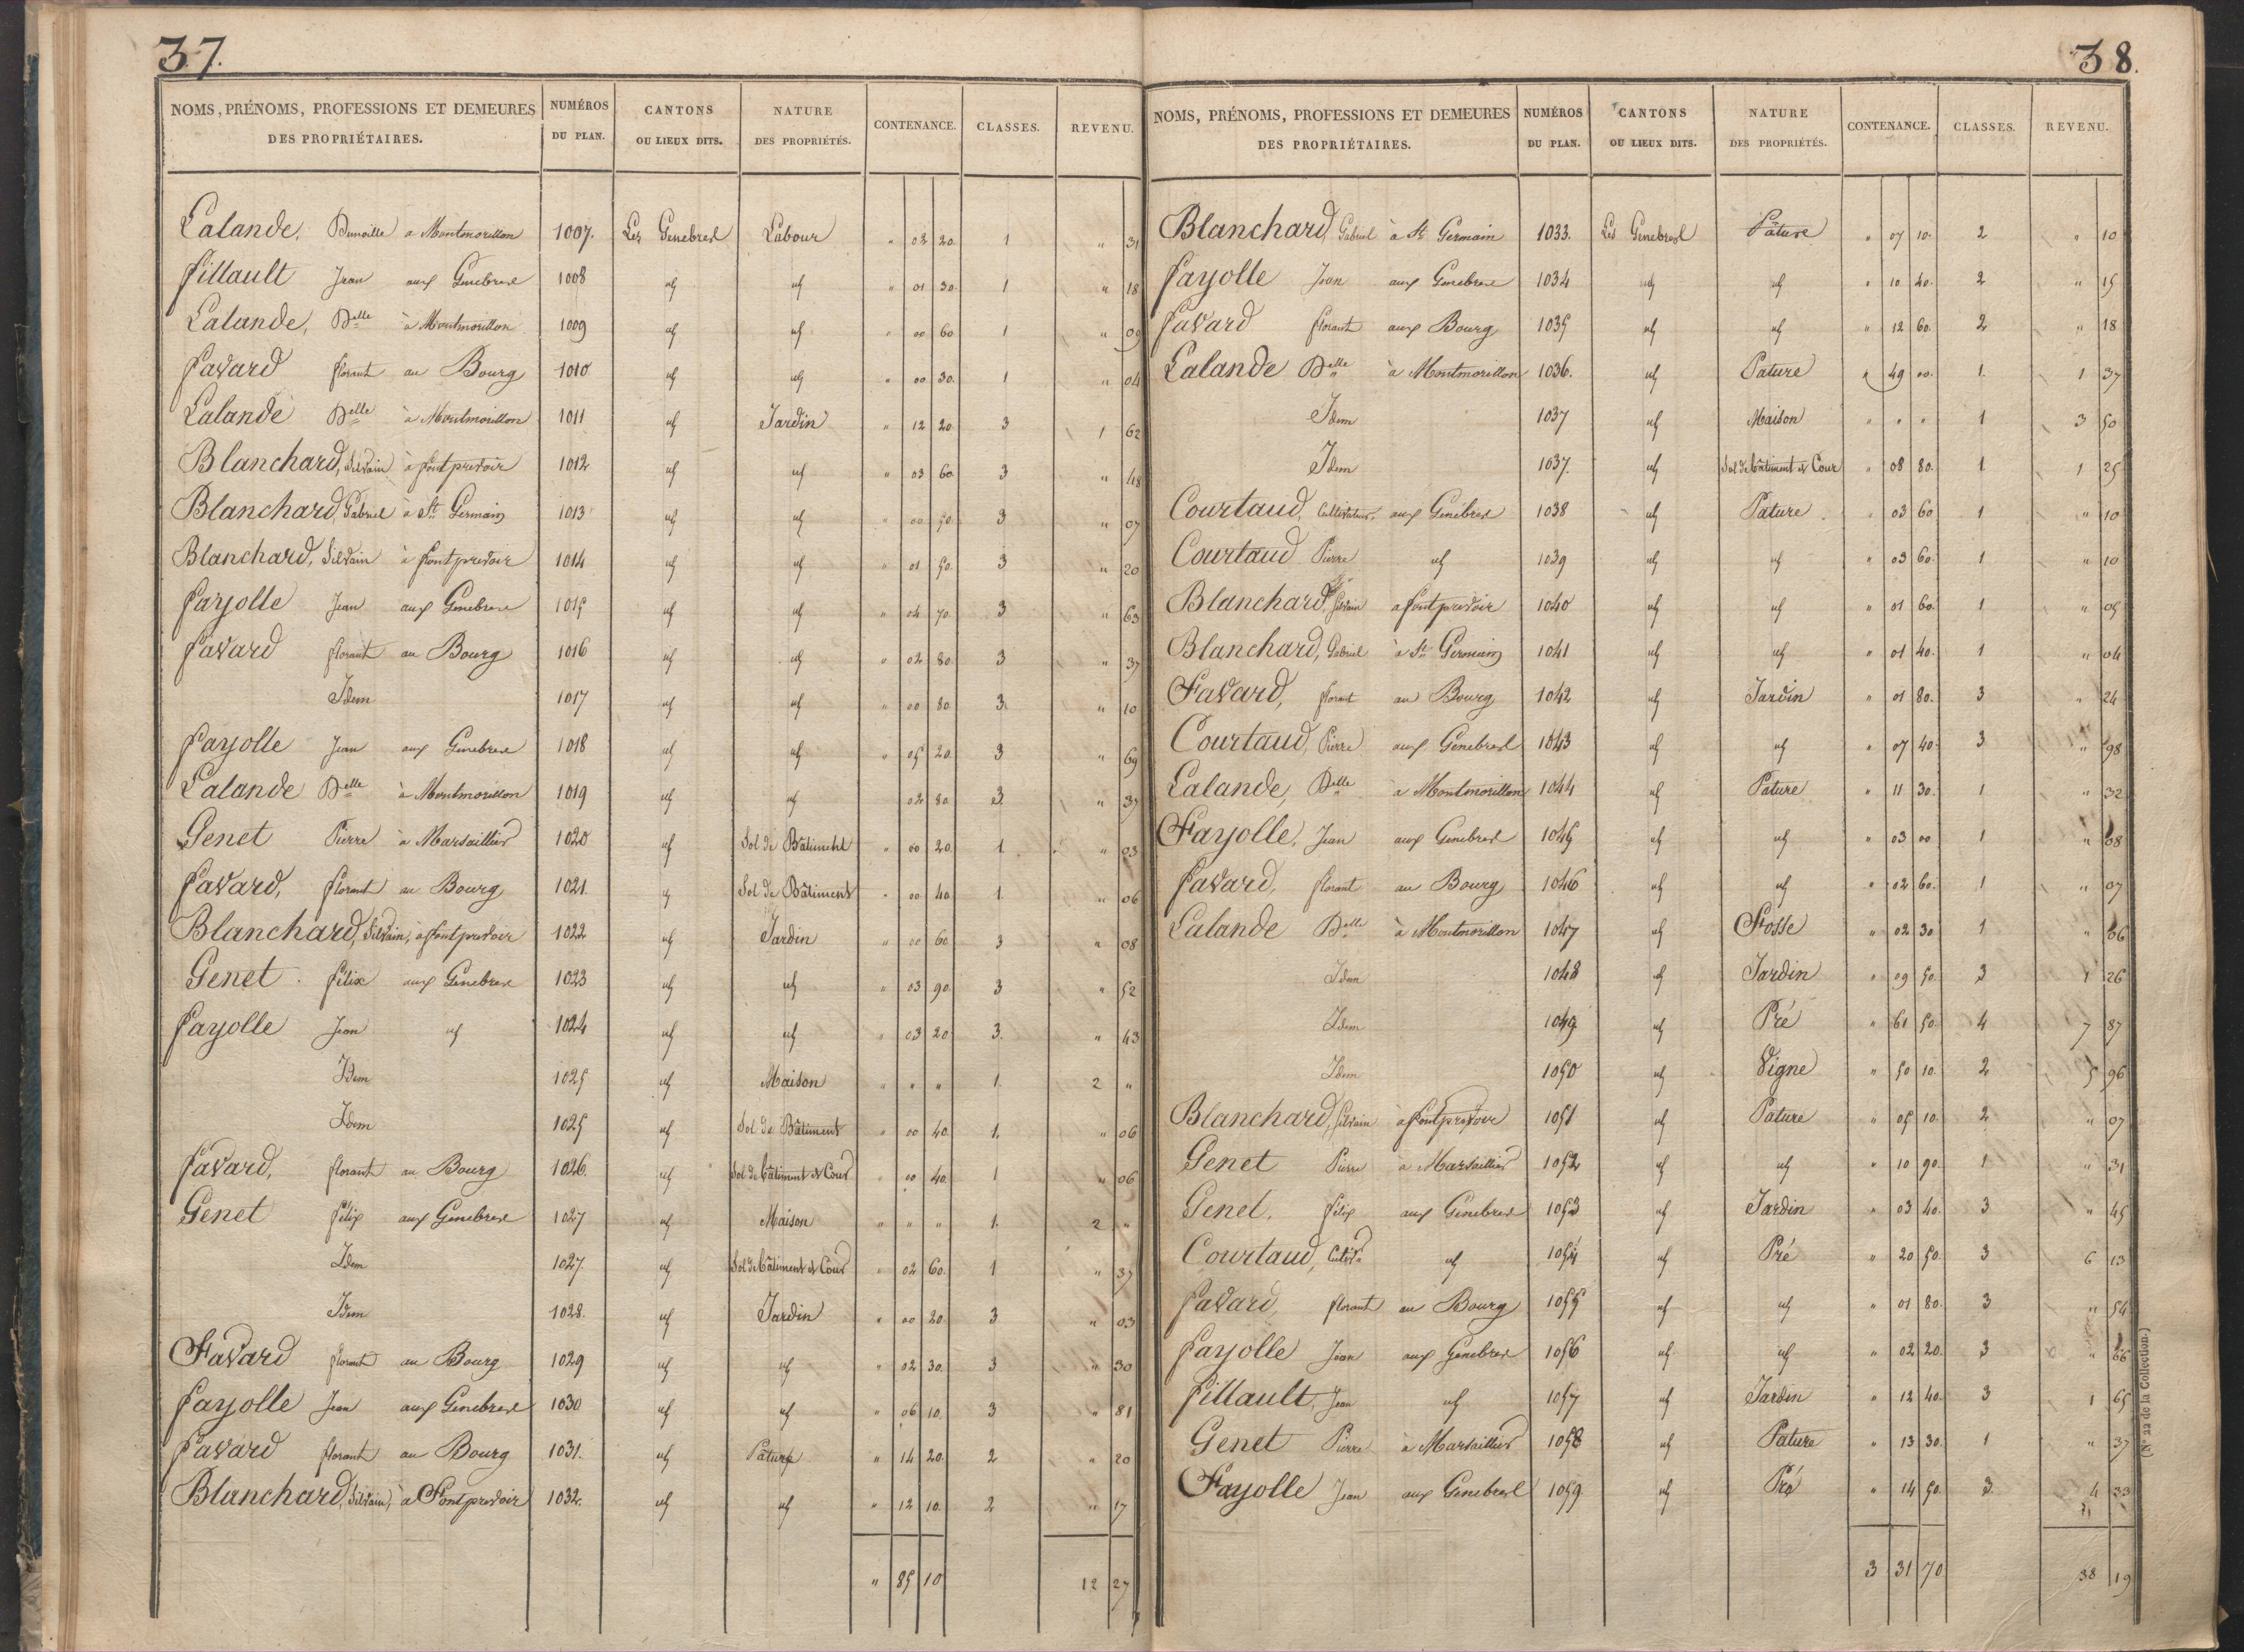 37.
NOMS, PRÉNOMS, PROFESSIONS ET DEMEURES DES PROPRIÉTAIRES. NUMÉROS DU PLAN. CANTONS OU LIEUX DITS. NATURE DES PROPRIÉTÉS. CONTENANCE. CLASSES. REVENU.
Lalande, Demoille à Montmorillon 1007. Les Genebres Labour " 02 20. 1 " 31
fillault Jean aux Genebres 1008 id id " 01 30. 1 " 18
Lalande, Delle à Montmorillon 1009 id id " 00 60 1 " 09
favard florant au Bourg 1010 id id " 00 30. 1 " 04
Lalande Delle à Montmorillon 1011 id Jardin " 12 20 3 1 62
Blanchard, Silvain à fontprevoir 1012 id id " 03 60 3 " 48
Blanchard, Gabriel à St Germain 1013 id id " 00 50 3 " 07
Blanchard, Silvain à fontprevoir 1014 id id " 01 50. 3 " 20
fayolle Jean aux Genebres 1015 id id " 04 70 3 " 63
favard florant au Bourg 1016 id id " 02 80 3 " 37
Idem 1017 id id " 00 80 3. " 10
fayolle Jean aux Genebres 1018 id id " 05 20. 3 " 69
Lalande Delle à Montmorillon 1019 id id 02 80 3 " 37
Genet Pierre à Marsaillier 1020 id Sol de Bâtiment " 00 20 1. " 03
favard, florant au Bourg 1021. id Sol de Bâtiment " 00 40 1. " 06
Blanchard, Silvain, à fontprevoir 1022 id Jardin " 00 60 3 " 08
Genet félix aux Genebres 1023 id id " 03 90 3 " 52
fayolle Jean id 1024 id id " 03 20 3. " 43
Idem 1025 id Maison " " " 1. 2 "
Idem 1025 id Sol de Bâtiment " 00 40. 1. " 06
favard, florant au Bourg 1026. id Sol de bâtiment et Cour " 00 40. 1 " 06
Genet félix aux Genebres 1027 id Maison " " " 1. 2 "
Idem 1027 id Sol de bâtiment et Cour " 02 60. 1 " 37
Idem 1028. id Jardin " 00 20 3 " 03
Favard florant au Bourg 1029 id id " 02 30. 3 " 30
fayolle Jean aux Genebres 1030 id id " 06 10. 3 " 81
favard florant au Bourg 1031. id Pâture " 14 20. 2 " 20
Blanchard, Silvain, à Fontprevoir 1032. id id " 12 10. 2 " 17
" 85 10 12 27
38.
NOMS, PRÉNOMS, PROFESSIONS ET DEMEURES DES PROPRIÉTAIRES. NUMÉROS DU PLAN. CANTONS OU LIEUX DITS. NATURE DES PROPRIÉTÉS. CONTENANCE. CLASSES. REVENU.
Blanchard, Gabriel à St Germain 1033. Les Genebres Pâture " 07 10. 2 " 10
fayolle Jean aux Genebres 1034 id id " 10 40. 2 " 15
favard florant aux Bourg 1035 id id " 12 60. 2 " 18
Lalande Delle à Montmorillon 1036. id Pature " 49 00. 1. 1 37
Idem 1037 id Maison " " " 1 3 50
Idem 1037. id Sol de bâtiment et Cour " 08 80. 1 1 25
Courtaud, Cultivateur, aux Genebres 1038 id Pature " 03 60 1 " 10
Courtaud Pierre id 1039 id id " 03 60. 1 " 10
Blanchard, Silvain à fontprevoir 1040 id id " 01 60. 1 " 05
Blanchard, Gabriel à St Germain 1041 id id " 01 40. 1 " 04
Favard, florant au Bourg 1042 id Jardin " 01 80. 3 " 24
Courtaud, Pierre aux Genebres 1043 id id " 07 40 3 " 98
Lalande, Delle à Montmorillon 1044 id Pature " 11 30. 1 " 32
Fayolle, Jean aux Genebres 1045 id id " 03 00 1 " 08
favard, florant au Bourg 1046 id id " 02 60. 1 " 07
Lalande Delle à Montmorillon 1047 id Fosse " 02 30 1 " 06
Idem 1048 id Jardin " 09 50. 3 1 26
Idem 1049 id Pré " 61 50. 4 7 87
Idem 1050 id Vigne " 50 10. 2 5 96
Blanchard, Silvain à fontprevoir 1051 id Pature " 05 10. 2 " 07
Genet Pierre à Marsaillier 1052 id id " 10 90. 1 " 31
Genet, félix aux Genebres 1053 id Jardin " 03 40. 3 " 45
Courtaud, Cultivr id 1054 id Pré " 20 50. 3 6 13
favard, florant au Bourg 1055 id id " 01 80. 3 " 54
fayolle Jean aux Genebres 1056 id id " 02 20. 3 " 66
fillault, Jean id 1057 id Jardin " 12 40. 3 1 65
Genet Pierre à Marsaillier 1058 id Pature " 13 30. 1 " 37
Fayolle Jean aux Genebres 1059 id Pré " 14 50. 3. 4 33
3 31 70 38 19
(N° 22 de la Collection.)